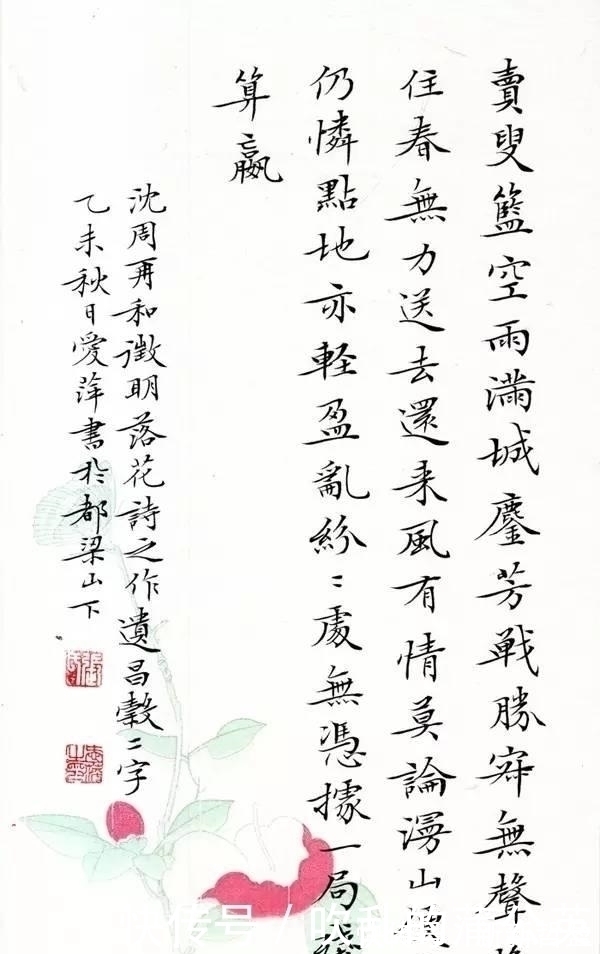 賣叟籃空雨滿城鏖芳戦勝寂無聲
住春無力送去還来風有情莫論漫山
仍憐點地亦軽盈亂紛〻處無憑據一局
算嬴
沈周再和徵明落花詩之作遺昌穀二字
乙未秋日愛萍書於都梁山下